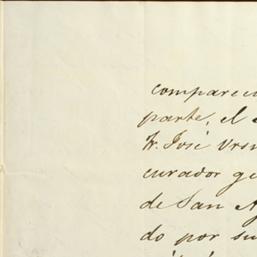 comparec
parte, el
Dr. José Urs
curador ge
de San A
do por su